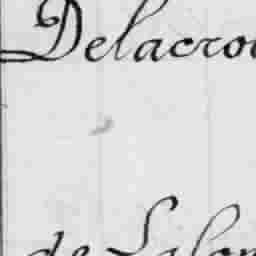 Delacroi
de Lalon